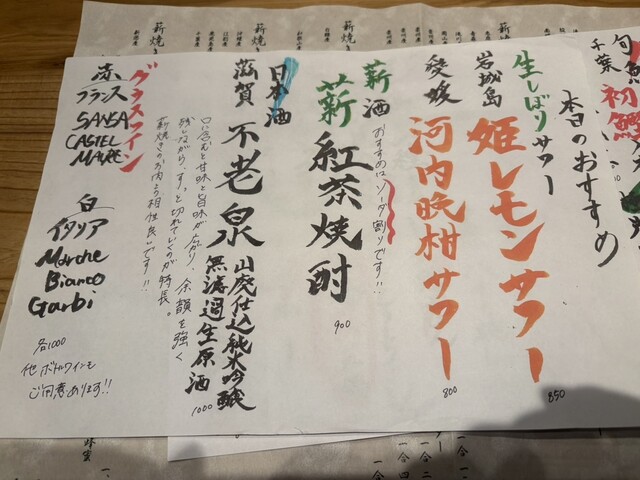 旬
千葉 初鰹
本日のおすすめ
生しぼりサワー
岩城島 姫レモンサワー 850
愛媛 河内晩柑サワー 800
薪酒 おすすめはソーダ割りです!!
薪 紅茶焼酎 900
日本酒
滋賀 不老泉 山廃仕込純米吟醸
無濾過生原酒 1000
口に含むと甘味と旨味が広がり、余韻を強く
残しながら、すっと切れていくのが特長。
薪焼きのお肉とも相性良いです!!
グラスワイン
赤
フランス
SANSA
CASTEL
MAURE
白
イタリア
Marche
Bianco
Garbi
各1000
他ボトルワインも
ご用意あります!!
薪焼き
薪焼